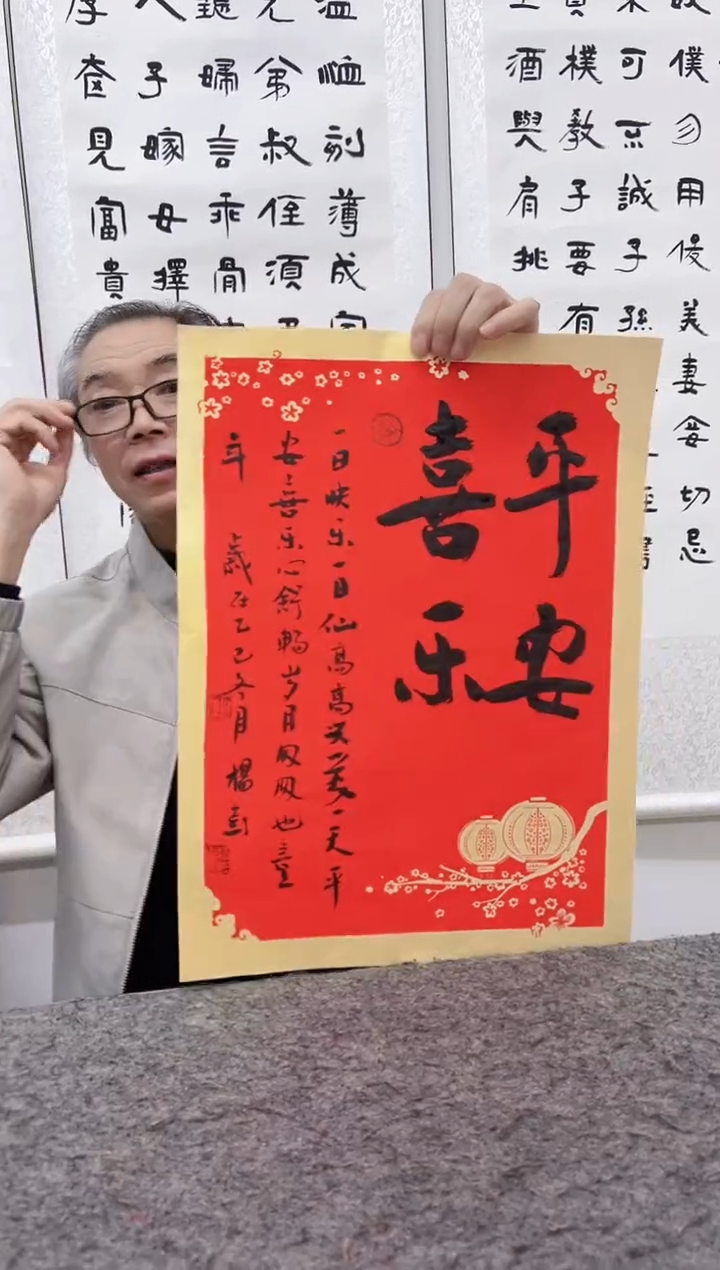 僕勿用俊美妻妾切忌
可不誠子孫
樸教子要有
酒與肩挑
恤刻薄成家
兄弟叔侄須
聽婦言乖骨
人子嫁女擇
厚奩見富貴
平安
喜乐
一日快乐一日仙高高兴美一天平
安喜乐心舒畅岁月匆匆也壹
年 歲在乙巳冬月 楊